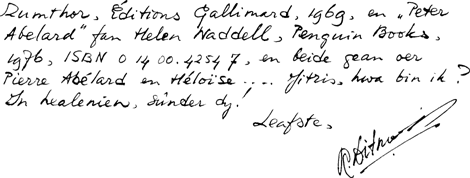 Zumthor, Éditions Gallimard, 1969, en „Peter
Abelard" fan Helen Waddell, Penguin Books,
1976, ISBN 0 14 00.4254 7, en beide gean oer
Pierre Abélard en Héloïse .... Jitris, hwa bin ik?
In healenien, sûnder dy!
Leafste,